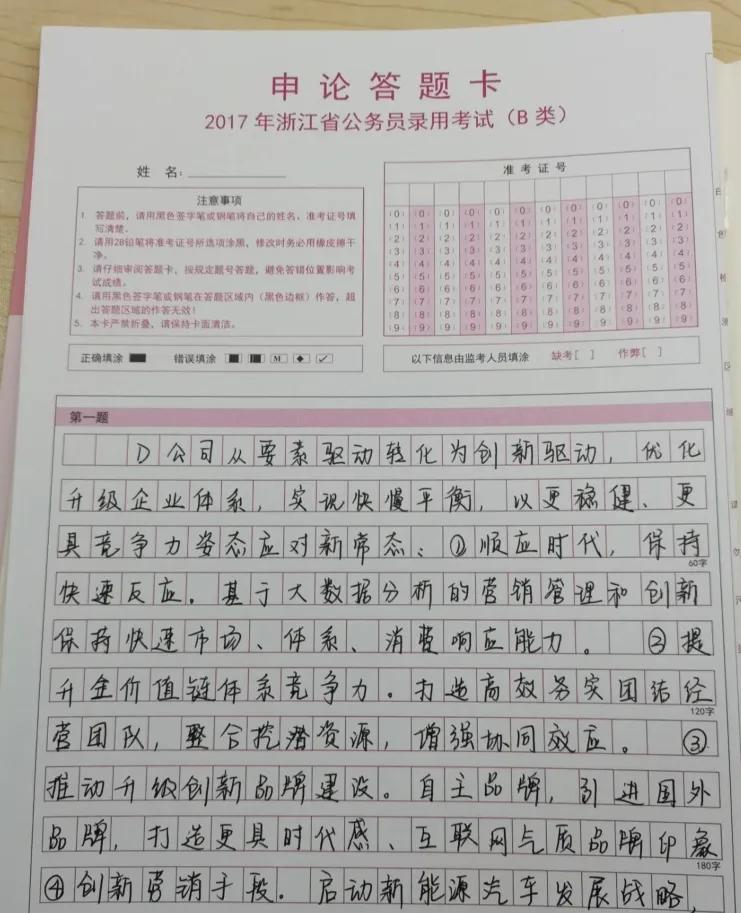 申论答题卡
2017年浙江省公务员录用考试（B类）
姓 名：
准考证号
注意事项
1. 答题前，请用黑色签字笔或钢笔将自己的姓名、准考证号填
写清楚。
2. 请用2B铅笔将准考证号所选项涂黑，修改时务必用橡皮擦干
净。
3. 请仔细审阅答题卡，按规定题号答题，避免答错位置影响考
试成绩。
4. 请用黑色签字笔或钢笔在答题区域内（黑色边框）作答，超
出答题区域的作答无效！
5. 本卡严禁折叠，请保持卡面清洁。
(0) (0) (0) (0) (0) (0) (0) (0) (0) (0) (0) (0)
(1) (1) (1) (1) (1) (1) (1) (1) (1) (1) (1) (1)
(2) (2) (2) (2) (2) (2) (2) (2) (2) (2) (2) (2)
(3) (3) (3) (3) (3) (3) (3) (3) (3) (3) (3) (3)
(4) (4) (4) (4) (4) (4) (4) (4) (4) (4) (4) (4)
(5) (5) (5) (5) (5) (5) (5) (5) (5) (5) (5) (5)
(6) (6) (6) (6) (6) (6) (6) (6) (6) (6) (6) (6)
(7) (7) (7) (7) (7) (7) (7) (7) (7) (7) (7) (7)
(8) (8) (8) (8) (8) (8) (8) (8) (8) (8) (8) (8)
(9) (9) (9) (9) (9) (9) (9) (9) (9) (9) (9) (9)
正确填涂 错误填涂 M
以下信息由监考人员填涂 缺考[ ] 作弊[ ]
第一题
D公司从要素驱动转化为创新驱动，优化
升级企业体系，实现快慢平衡，以更稳健、更
具竞争力姿态应对新常态：①顺应时代，保持
60字
快速反应。基于大数据分析的营销管理和创新
保持快速市场、体系、消费响应能力。 ②提
升全价值链体系竞争力。打造高效务实团结经
120字
营团队，整合挖潜资源，增强协同效应。 ③
推动升级创新品牌建设。自主品牌，引进国外
品牌，打造更具时代感、互联网气质品牌印象
180字
④创新营销手段。启动新能源汽车发展战略，